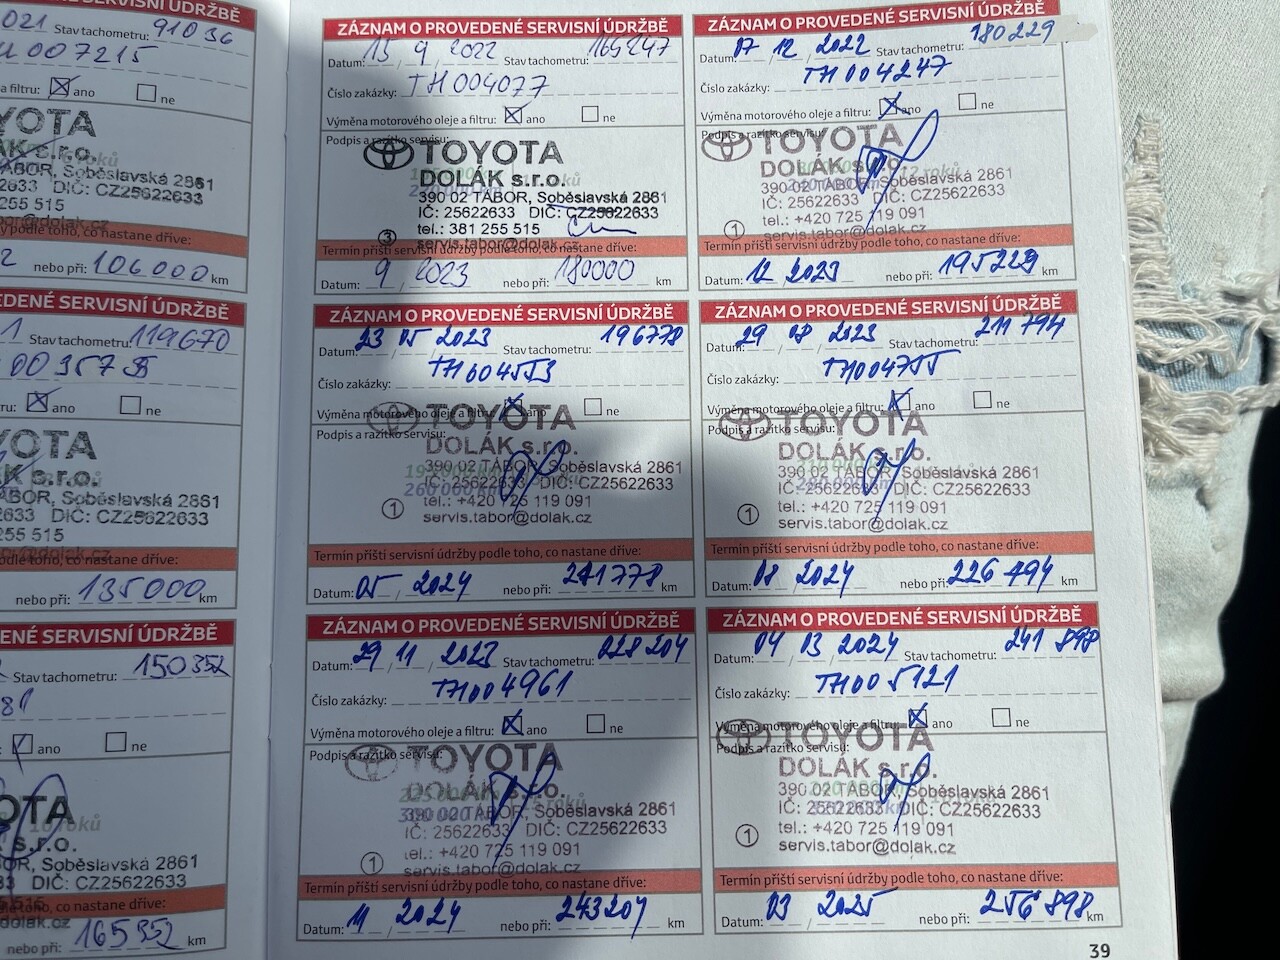 SERVISNÍ ÚDRŽBĚ
021 Stav tachometru: 91036
007215
a filtru: ano ne
TOYOTA
DOLÁK s.r.o.
TÁBOR, Soběslavská 2861
2633 DIČ: CZ25622633
255 515
podle toho, co nastane dříve:
2 nebo při: 106000 km
PROVEDENÉ SERVISNÍ ÚDRŽBĚ
1 Stav tachometru: 119670
ru: ano ne
TOYOTA
K s.r.o.
BOR, Soběslavská 2861
633 DIČ: CZ25622633
255 515
podle toho, co nastane dříve:
nebo při: 135000 km
SERVISNÍ ÚDRŽBĚ
Stav tachometru: 150352
ano ne
OTA
s.r.o.
OR, Soběslavská 2861
33 DIČ: CZ25622633
toho, co nastane dříve:
nebo při: 165352 km
ZÁZNAM O PROVEDENÉ SERVISNÍ ÚDRŽBĚ
Datum: 15 / 9 / 2022 Stav tachometru: 165247
Číslo zakázky: TH004077
Výměna motorového oleje a filtru: ano ne
Podpis a razítko servisu:
TOYOTA
DOLÁK s.r.o.
390 02 TÁBOR, Soběslavská 2861
IČ: 25622633 DIČ: CZ25622633
3 tel.: 381 255 515
servis.tabor@dolak.cz
Termín příští servisní údržby podle toho, co nastane dříve:
Datum: 9 / 2023 nebo při: 180000 km
ZÁZNAM O PROVEDENÉ SERVISNÍ ÚDRŽBĚ
Datum: 07 / 12 / 2022 Stav tachometru: 180229
Číslo zakázky: TH004247
Výměna motorového oleje a filtru: ano ne
Podpis a razítko servisu:
TOYOTA
DOLÁK s.r.o.
390 02 TÁBOR, Soběslavská 2861
IČ: 25622633 DIČ: CZ25622633
1 tel.: +420 725 119 091
servis.tabor@dolak.cz
Termín příští servisní údržby podle toho, co nastane dříve:
Datum: 12 / 2023 nebo při: 195229 km
ZÁZNAM O PROVEDENÉ SERVISNÍ ÚDRŽBĚ
Datum: 23 / 05 / 2023 Stav tachometru: 196778
Číslo zakázky: TH004553
Výměna motorového oleje a filtru: ano ne
Podpis a razítko servisu:
TOYOTA
DOLÁK s.r.o.
390 02 TÁBOR, Soběslavská 2861
IČ: 25622633 DIČ: CZ25622633
1 tel.: +420 725 119 091
servis.tabor@dolak.cz
Termín příští servisní údržby podle toho, co nastane dříve:
Datum: 05 / 2024 nebo při: 211778 km
ZÁZNAM O PROVEDENÉ SERVISNÍ ÚDRŽBĚ
Datum: 29 / 08 / 2023 Stav tachometru: 211 794
Číslo zakázky: TH004755
Výměna motorového oleje a filtru: ano ne
Podpis a razítko servisu:
TOYOTA
DOLÁK s.r.o.
390 02 TÁBOR, Soběslavská 2861
IČ: 25622633 DIČ: CZ25622633
1 tel.: +420 725 119 091
servis.tabor@dolak.cz
Termín příští servisní údržby podle toho, co nastane dříve:
Datum: 08 / 2024 nebo při: 226 794 km
ZÁZNAM O PROVEDENÉ SERVISNÍ ÚDRŽBĚ
Datum: 29 / 11 / 2023 Stav tachometru: 228 204
Číslo zakázky: TH004961
Výměna motorového oleje a filtru: ano ne
Podpis a razítko servisu:
TOYOTA
DOLÁK s.r.o.
390 02 TÁBOR, Soběslavská 2861
IČ: 25622633 DIČ: CZ25622633
1 tel.: +420 725 119 091
servis.tabor@dolak.cz
Termín příští servisní údržby podle toho, co nastane dříve:
Datum: 11 / 2024 nebo při: 243204 km
ZÁZNAM O PROVEDENÉ SERVISNÍ ÚDRŽBĚ
Datum: 04 / 03 / 2024 Stav tachometru: 241 898
Číslo zakázky: TH005121
Výměna motorového oleje a filtru: ano ne
Podpis a razítko servisu:
TOYOTA
DOLÁK s.r.o.
390 02 TÁBOR, Soběslavská 2861
IČ: 25622633 DIČ: CZ25622633
1 tel.: +420 725 119 091
servis.tabor@dolak.cz
Termín příští servisní údržby podle toho, co nastane dříve:
Datum: 03 / 2025 nebo při: 256 898 km
39